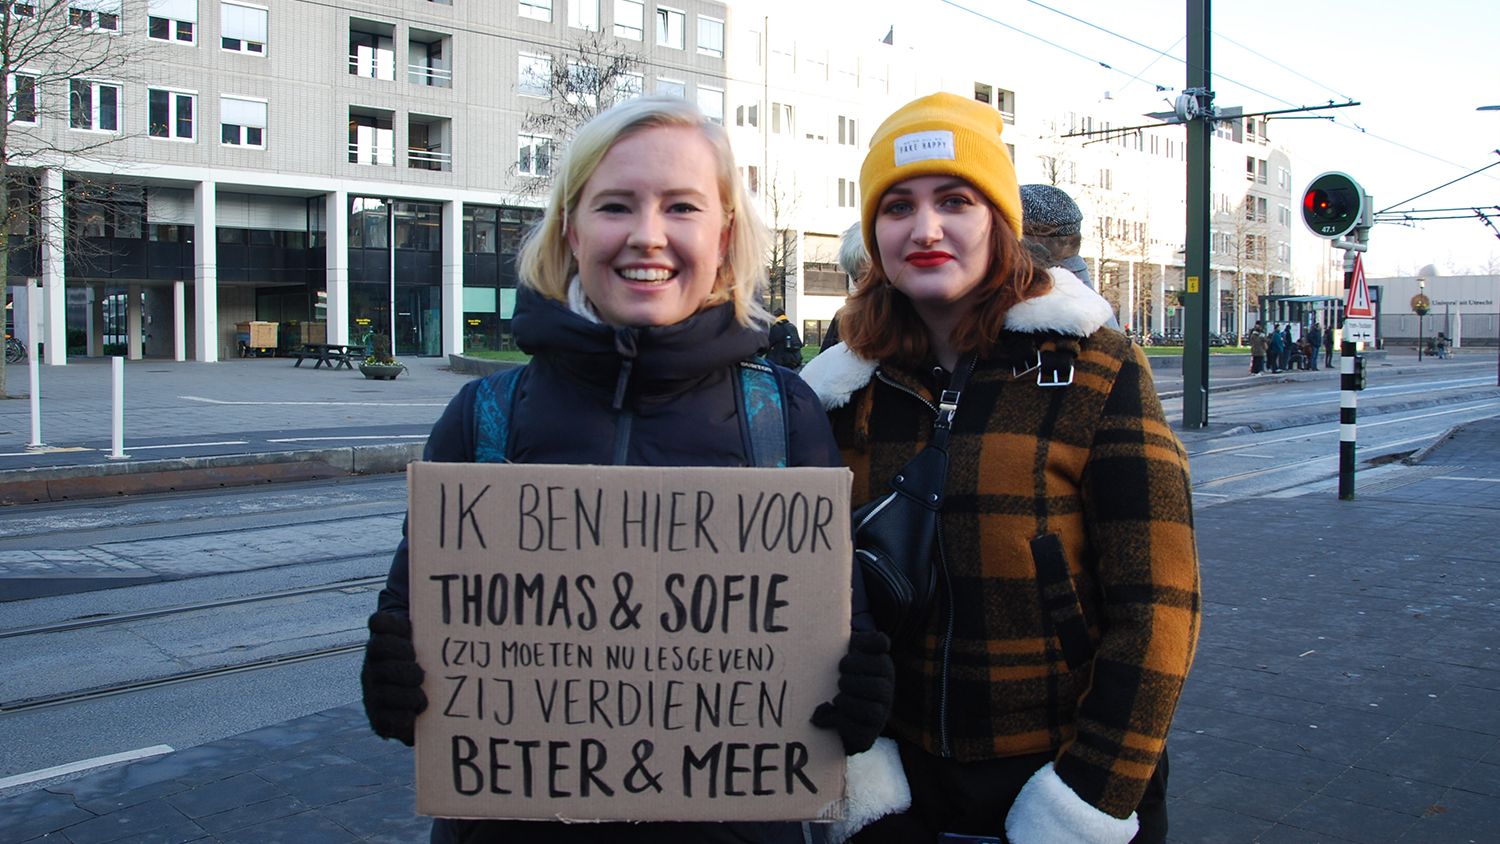 IK BEN HIER VOOR
THOMAS & SOFIE
(ZIJ MOETEN NU LESGEVEN)
ZIJ VERDIENEN
BETER & MEER
BAKE HAPPY
BURTON
47.1
Universiteit Utrecht